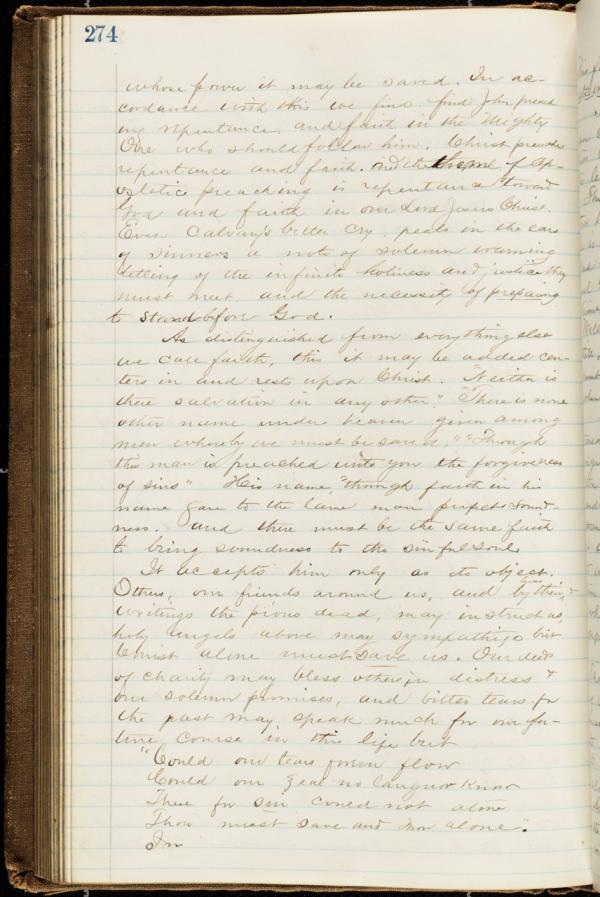 274
whose power it may be saved. In ac-
cordance with this we find find John preach
ing repentance, and faith in the Mighty
One who should follow him. Christ preaches
repentance and faith. And the theme of Ap-
ostolic preaching is repentance toward
God and faith in our Lord Jesus Christ.
Even Calvary's bitter cry peals in the ears
of sinners a note of solemn warning
telling of the infinite holiness and justice they
must meet and the necessity of preparing
to stand before God.
As distinguished from everything else
we call faith, this it may be added cen-
ters in and rests upon Christ. "Neither is
there salvation in any other" "There is none
other name under heaven given among
men whereby we must be saved," "Through
this man is preached unto you the forgiveness
of sins" His name, "through faith in his
name gave to the lame man perfect sound-
ness. and there must be the same faith
to bring soundness to the sinful soul
It accepts him only as its object.
Others, our friends around us, and by their
writings the pious dead, may instruct us,
holy angels above may sympathize but
Christ alone must save us. Our deeds
of charity may bless others in distress &
our solemn promises, and bitter tears for
the past may speak much for our fu-
ture course in this life but
"Could our tears forever flow
Could our zeal no languor know
These for sin could not atone
Thou must save and thou alone".
Im